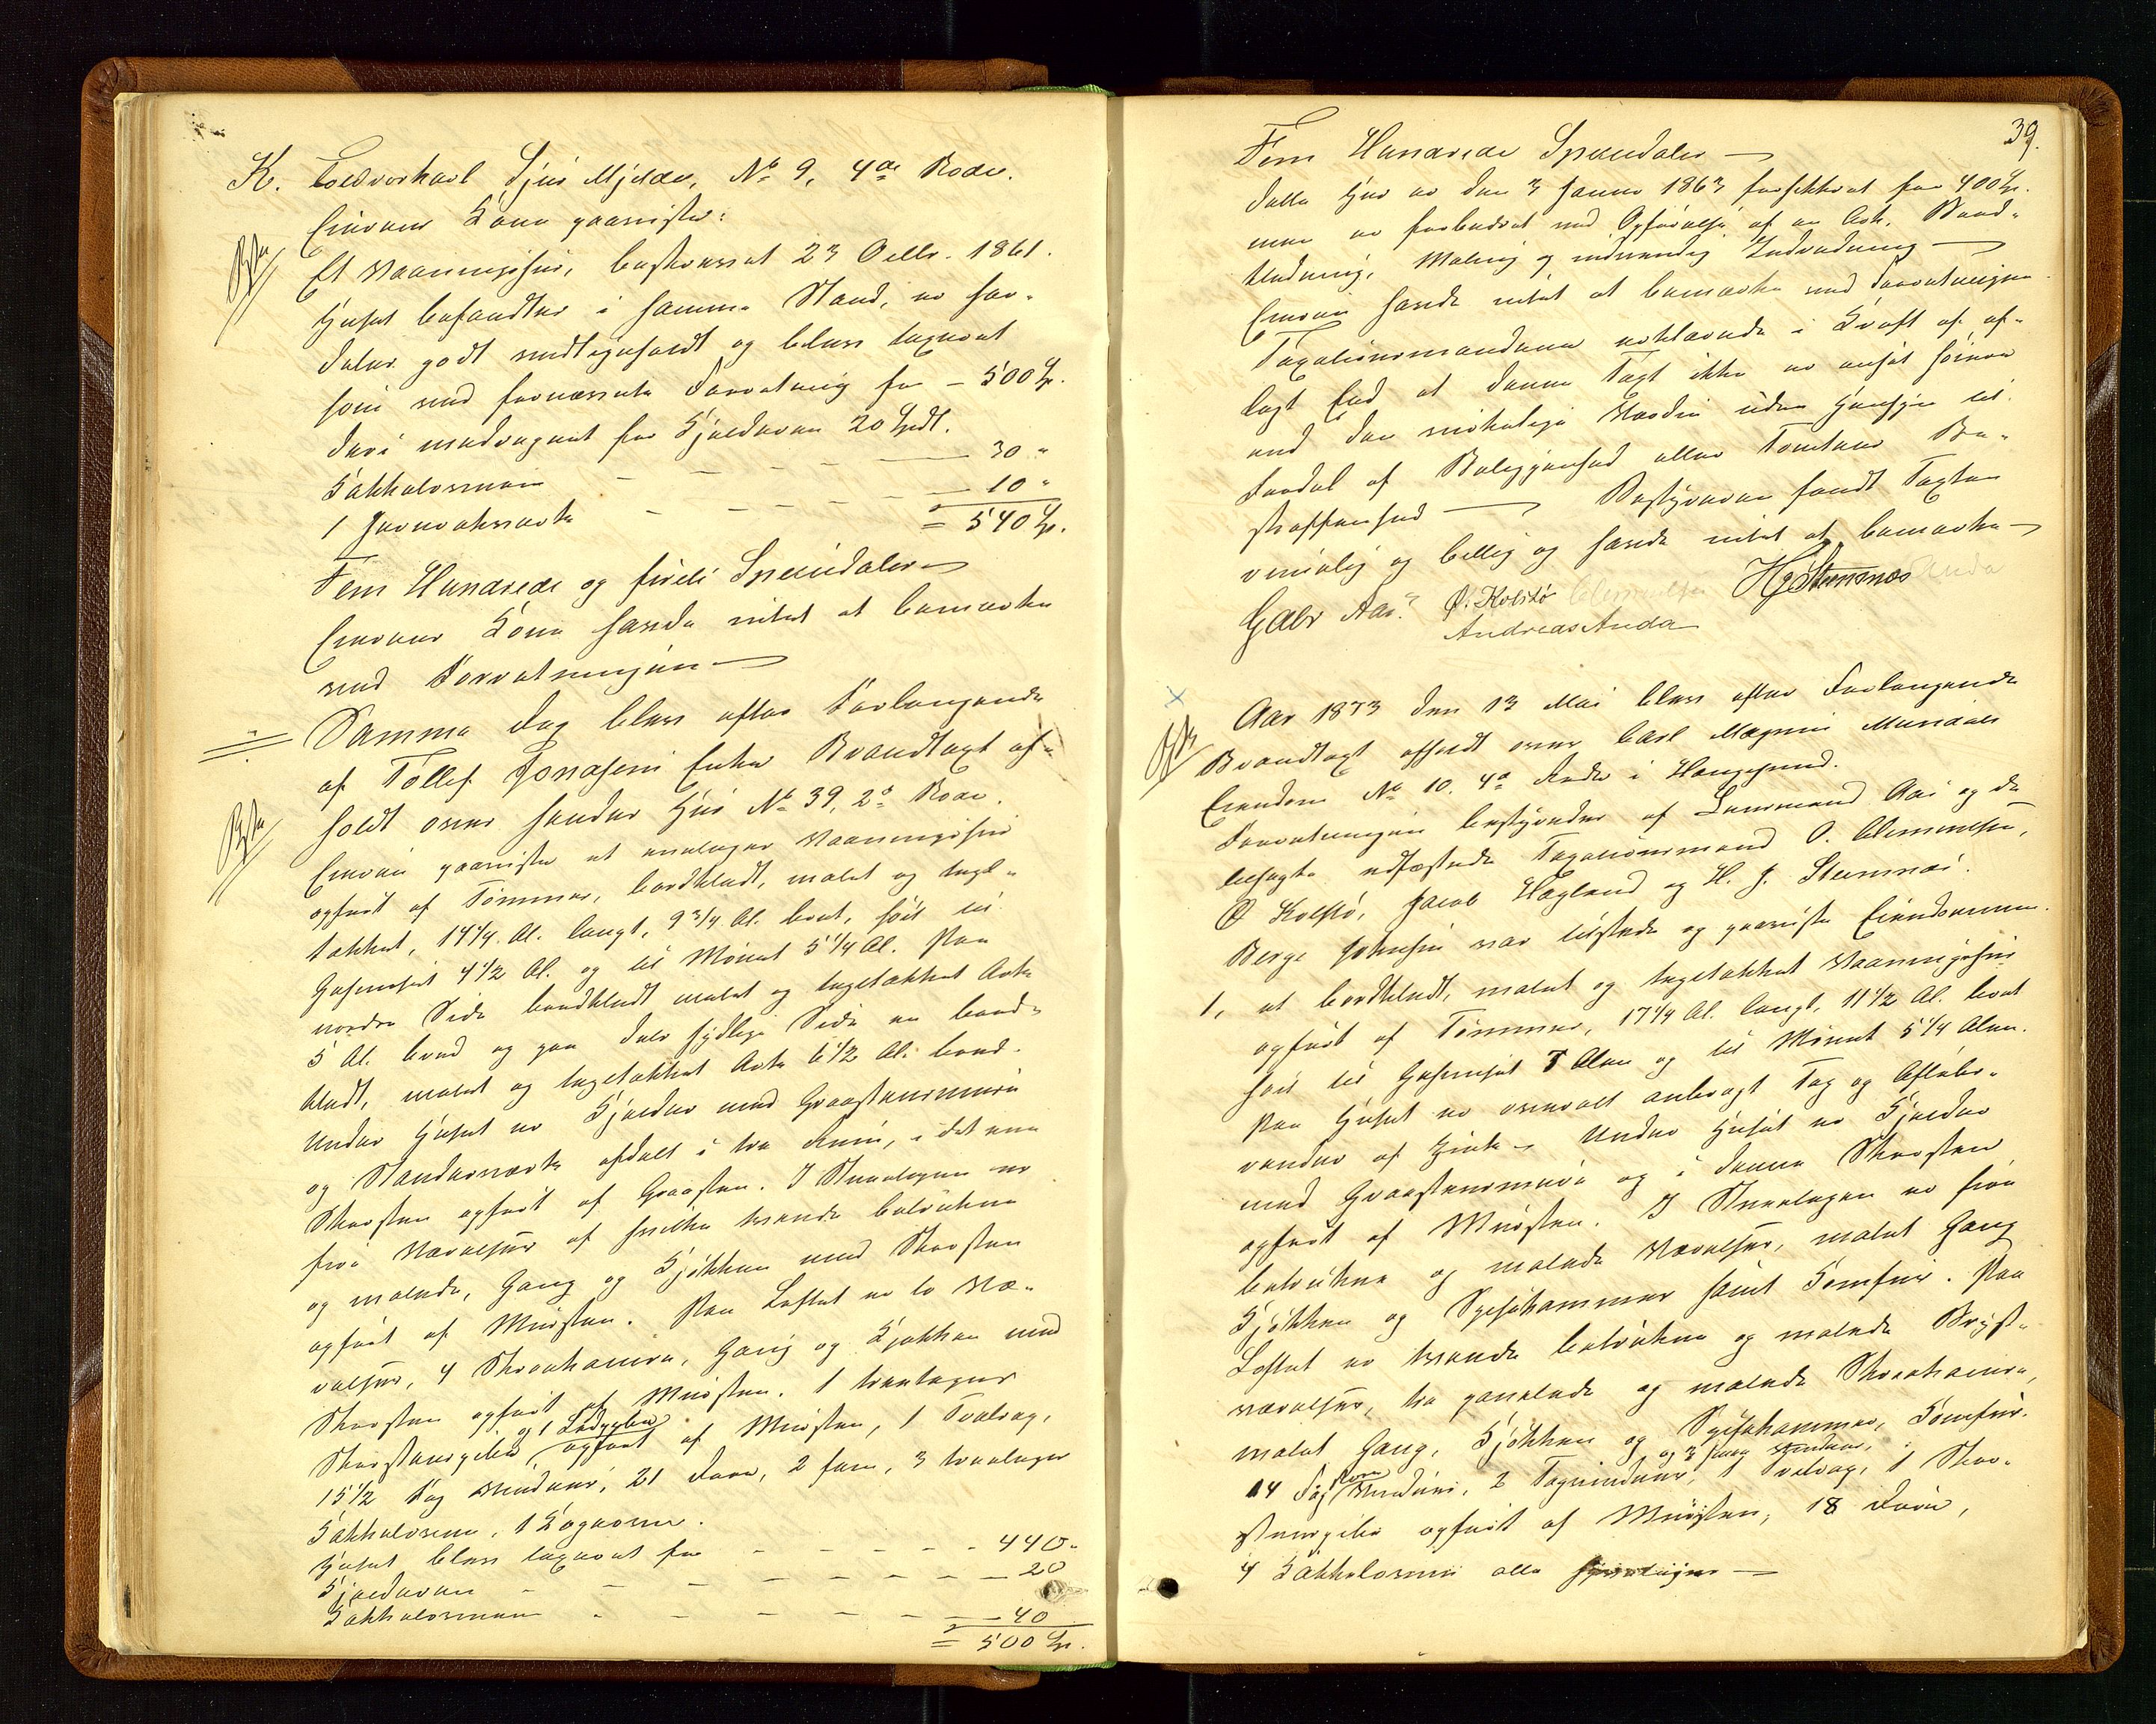 K. Toldvorkarl Sjur Mjelde, No 9, 4de Rode.
Eierens Kone paaviste:
Et Vaaningshus, beskrevet 23 Octbr. 1861.
Huset befandtes i samme Stand, er frem-
deles godt vedligeholdt og blev taxeret
som ved forrige Forretning for – 500 Sp.
deri medregnet for Kjelderen 20 Spdl.
Kakkelovnen – – – – 30 "
1 Jernvaskeværk – – – – 10 "
= 540 Sp.
Fem Hundrede og firti Speciedaler
Eierens Kone havde intet at bemærke
ved Forretningen
Samme Dag blev efter Forlangende
af Tollef Jonasens Enke Brandtaxt af-
holdt over hendes Hus No 39, 2de Rode.
Eieren paaviste et toetages Vaaningshus
opført af Tømmer, bordklædt, malet og tegl-
tækket, 14 1/4 Al. langt, 9 3/4 Al. bredt, høit til
Gesimset 4 1/2 Al. og til Mønet 5 1/4 Al. Paa
nordre Side bordklædt malet og tegltækket Ark
5 Al. bred og paa dets sydlige Side en bord-
klædt, malet og tegltækket Ark 6 1/2 Al. bred.
Under Huset er Kjelder med Graastensmure
og Standerværk afdelt i tre Rum, i det ene
Skorsten opført af Graasten. I Stueetagen er
fire Værelser af hvilke tvende betrukne
og malede, Gang og Kjøkken med Skorsten
opført af Mursten. Paa Loftet er to Væ-
relser, 4 Skraakamre, Gang og Kjøkken med
Skorsten opført af Mursten. 1 toetages
og 1 Ladepibe
Skorstenspibe opført af Mursten, 1 Tvalrag,
15 1/2 Fag Vinduer, 21 Døre, 2 fem, 3 treetages
Kakkelovne, 1 Kogeovn.
Huset blev taxeret for – – – – 440 "
Kjelderen – – – – 20
Kakkelovnene – – – – 40
= 500 Sp.
39.
Fem Hundrede Speciedaler
Dette Hus er den 3 Januar 1863 forsikkret for 400 Sp.
men er forbedret ved Opførelse af en Ark, Bord-
klædning, Maling og indvendig Indredning
Eieren havde intet at bemærke ved Forretningen
Taxationsmændene erklærede i Kraft af af-
lagt Eed at denne Taxt ikke er ansat høiere
end den virkelige Værdi uden Hensyn til
Fordel af Beliggenhed eller Tomtens Be-
skaffenhed Bestyreren fandt Taxten
rimelig og billig og havde intet at bemærke
Gabr Aas. O. Kolstø Clemmetsen HJ Stumnæs
Andreas Anda
Aar 1873 den 13 Mai blev efter Forlangende
Brandtaxt afholdt over Carl Magnus
Eiendom No 10, 4de Rode i Haugesund.
Forretningen bestyredes af Lensmand Aas og de
udfæstede Taxationsmænd O. Clemmetsen,
O Kolstø, Jacob Hagland og H. J. Stumnæs.
Berge Johnsen var tilstede og paaviste Eiendommen.
1, et bordklædt, malet og tegltækket Vaaningshus
opført af Tømmer, 17 1/4 Al. langt, 11 1/2 Al. bredt
høit til Gesimset 7 Alen og til Mønet 5 1/4 Alen.
Paa Huset er overalt anbragt Tag og Afløbs-
render af Zink – Under Huset er Kjelder
med Graastensmure og i denne Skorsten
opført af Mursten. I Stueetagen er fire
betrukne og malede Værelser, malet Gang
Kjøkken og Spisekammer samt Komfur. Paa
Loftet er tvende betrukne og malede Kvist-
værelser, tre panelede og malede Skraakamre,
malet Gang, Kjøkken og Spisekammer, Komfur.
14 Fag Vinduer, 2 Tagvinduer, 1 Tvalrag, 1 Skor-
stenspibe opført af Mursten, 18 Døre,
4 Kakkelovne alle